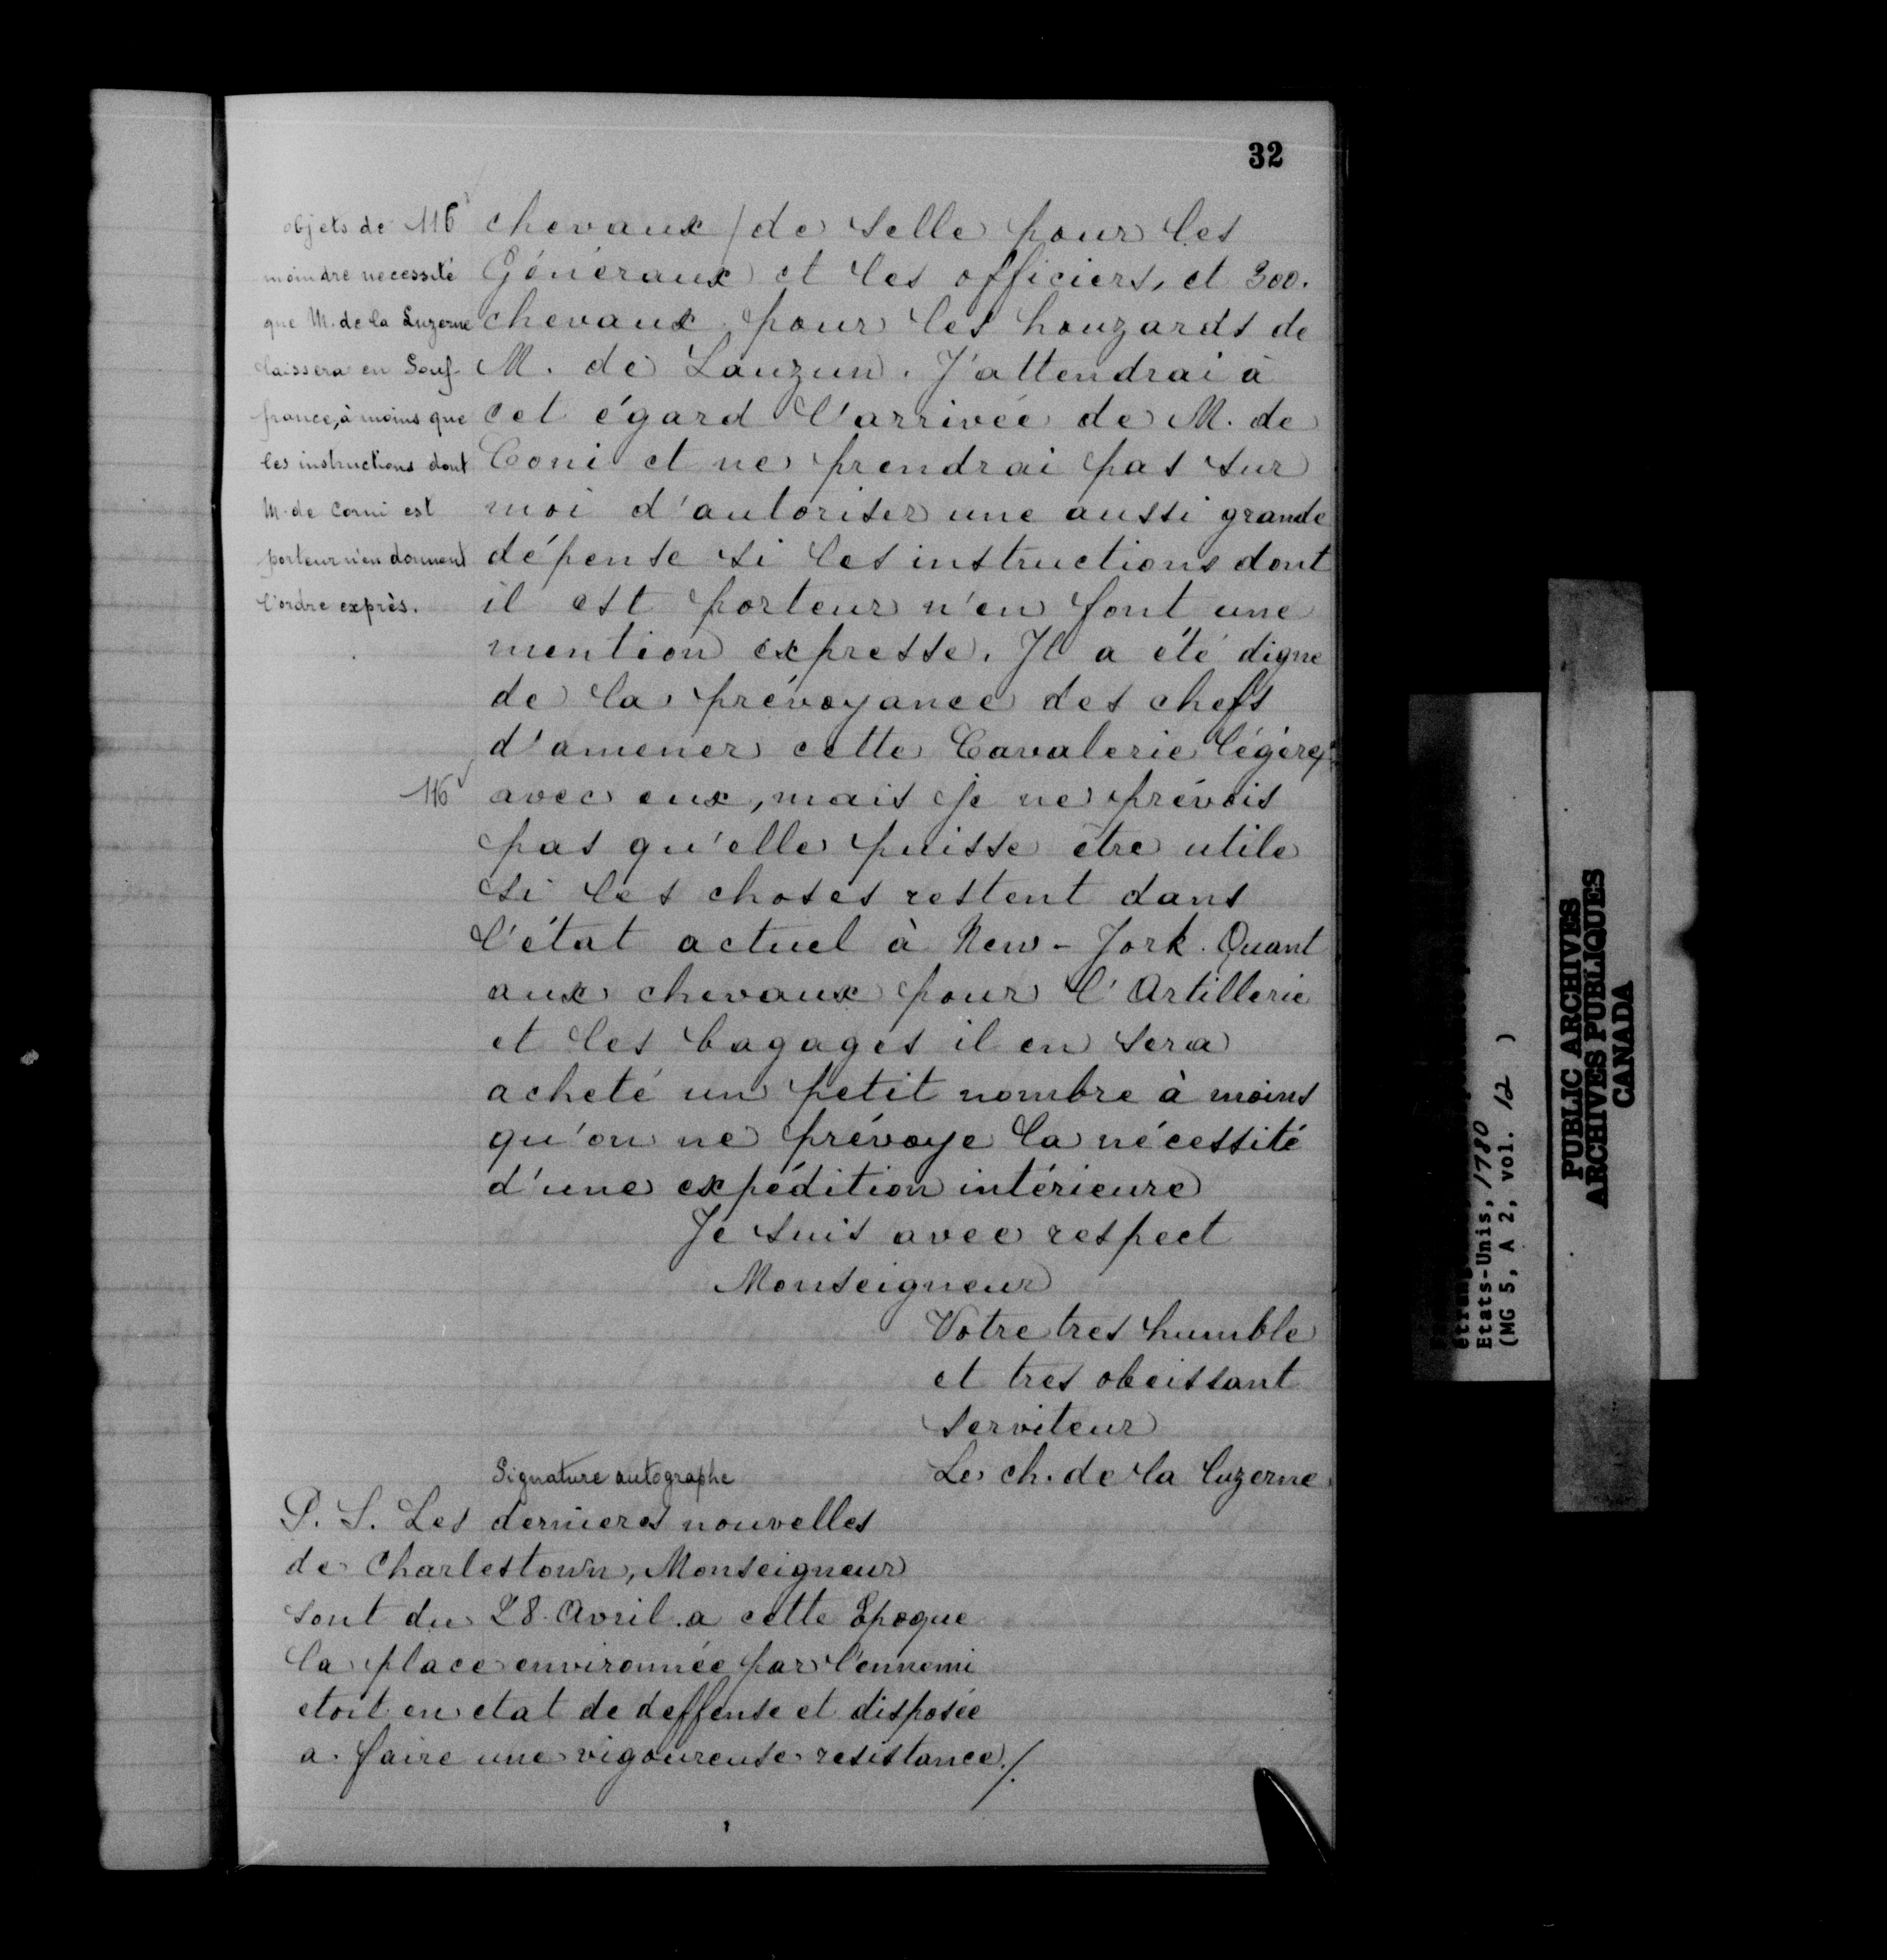 32
objets de 116
moindre necessité
que M. de la Luzerne
laissera en Souf-
france, à moins que
les instructions dont
M. de Corni est
porteur n'en donnent
l'ordre exprès.
chevaux / de selle pour les
Généraux et les officiers, et 300.
chevaux pour les houzards de
M. de Lauzun. J'attendrai à
cet égard l'arrivée de M. de
Coni et ne prendrai pas sur
moi d'autoriser une aussi grande
dépense si les instructions dont
il est porteur n'en font une
mention expresse. Il a été digne
de la prévoyance des chefs
d'amener cette Cavalerie légère
116 avec eux, mais je ne prévois
pas qu'elle puisse être utile
si les choses restent dans
l'état actuel à New-York. Quant
aux chevaux pour l'Artillerie
et les bagages il en sera
acheté un petit nombre à moins
qu'on ne prévoye la nécessité
d'une expédition intérieure
Je suis avec respect
Monseigneur
Votre tres humble
et tres obeissant
serviteur
Signature autographe Le ch. de la luzerne
P. S. Les dernieres nouvelles
de Charlestown, Monseigneur
sont du 28 Avril. a cette Epoque
la place environnée par l'ennemi
etoit en etat de deffense et disposée
a faire une vigoureuse resistance ./.
Etats-Unis, 1780
(MG 5, A 2, vol. 12 )
PUBLIC ARCHIVES
ARCHIVES PUBLIQUES
CANADA